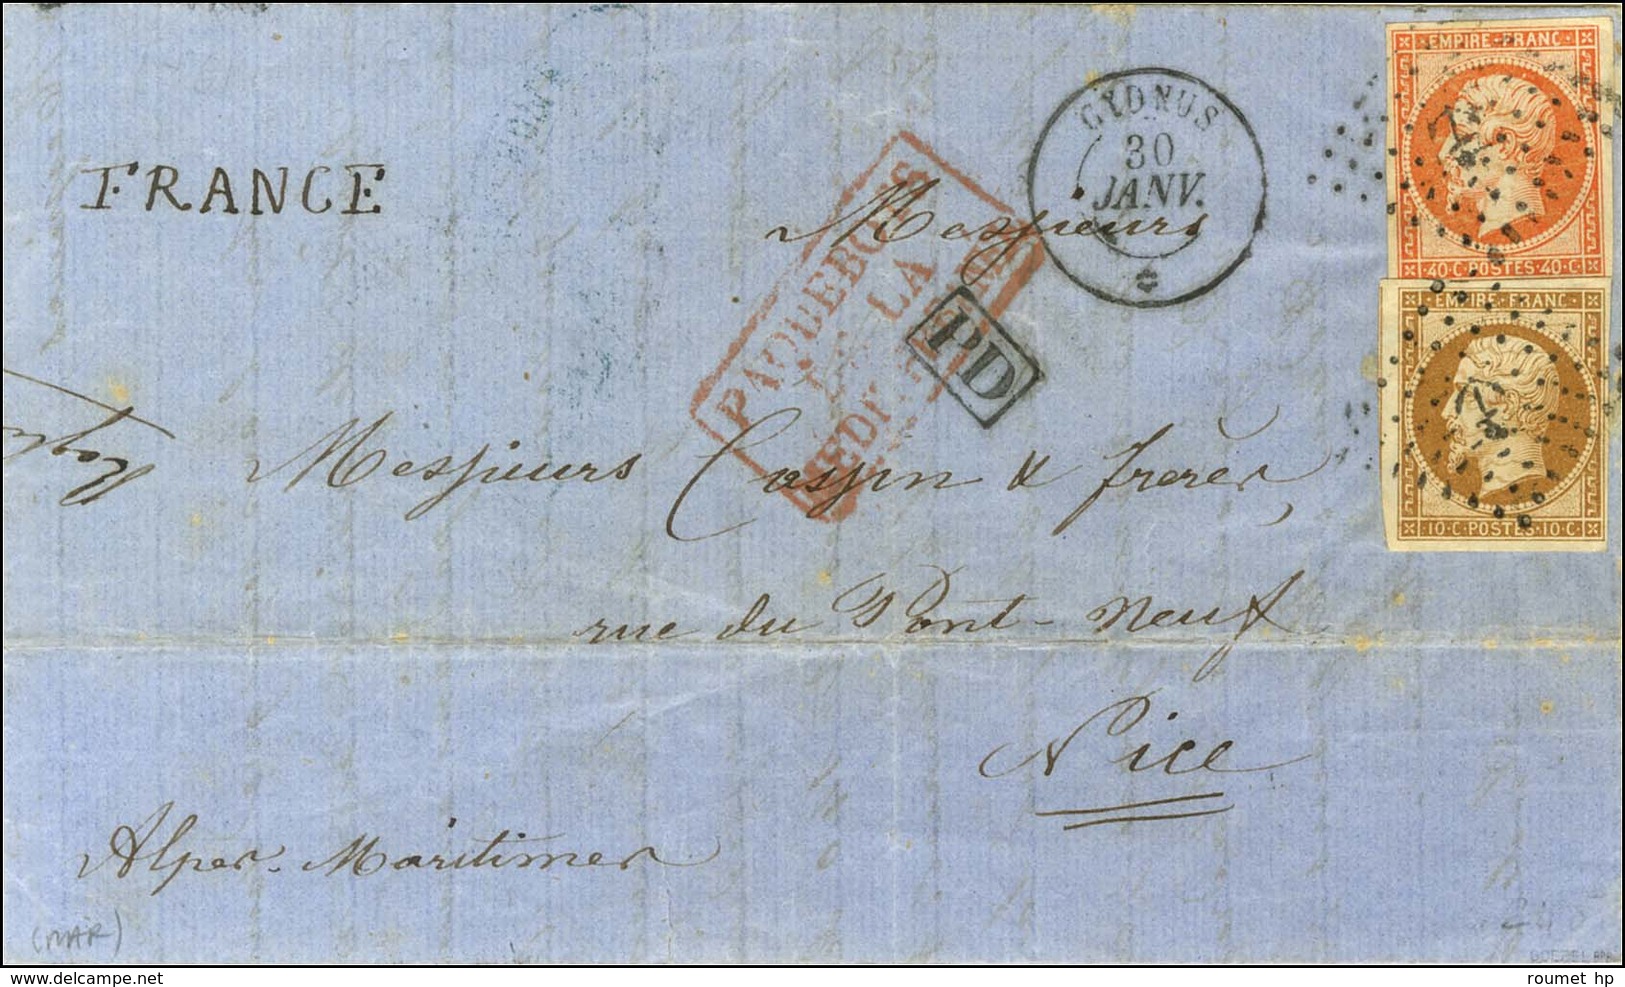 EMPIRE FRANC.
40·C·POSTES·40·C
EMPIRE FRANC.
10·C·POSTES·10·C
CYDNUS
30
JANV.
PAQUEBOTS
LA
PD
FRANCE
Messieurs
Messieurs Cossin & frères,
rue du Pont-Neuf
Nice
Alpes-Maritimes
(MAR)
roumet hp